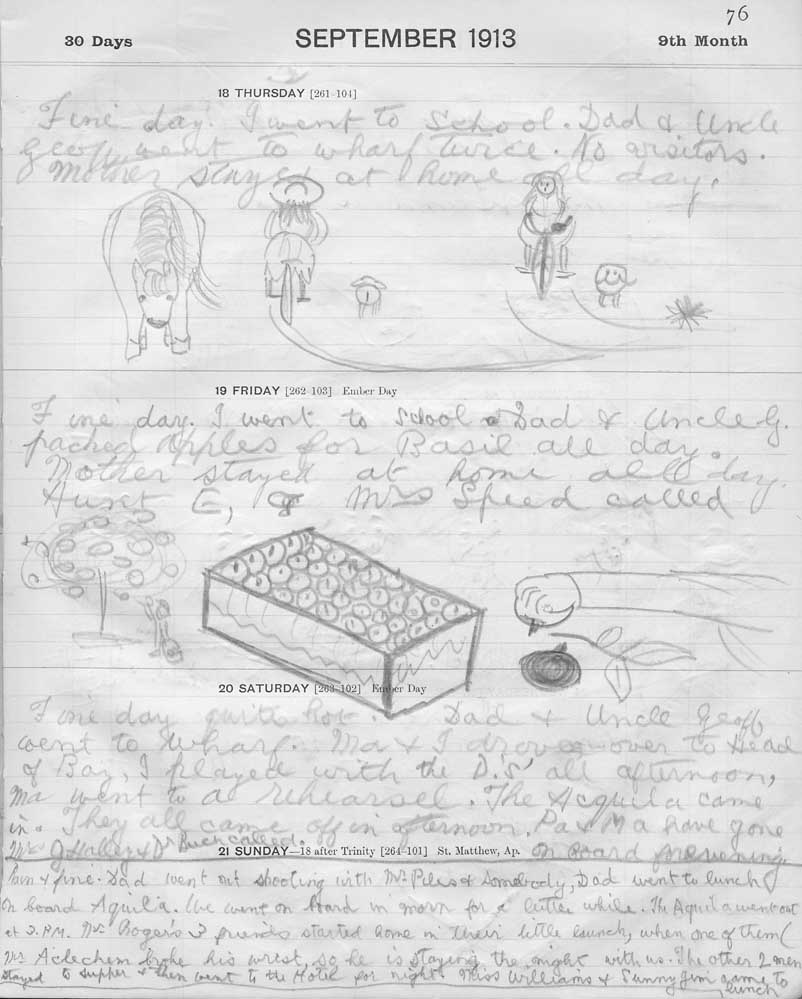 76
30 Days SEPTEMBER 1913 9th Month
18 THURSDAY [261-104]
Fine day. I went to School. Dad & Uncle
Geoff went to wharf twice. No visitors.
Mother stayed at home all day.
19 FRIDAY [262-103] Ember Day
Fine day. I went to School. Dad & Uncle G.
packed Apples for Basil all day.
Mother stayed at home all day.
Aunt E, & Mrs Speed called
20 SATURDAY [263-102] Ember Day
Fine day quite hot. Dad & Uncle Geoff
went to Wharf. Ma & I drove over to Head
of Bay, I played with the D.S' all afternoon,
Ma went to a rehearsel. The Acquila came
in. They all came off in afternoon. Pa & Ma have gone
on board for evening.
Mrs & Dr called.
21 SUNDAY—18 after Trinity [264-101] St. Matthew, Ap.
Rain & fine. Dad went out shooting with Mr & Somebody, Dad went to lunch
on board Aquila. We went on board in morn for a little while. The Aquila went out
at 3.P.M. Mr Rogers & 3 friends started home in their little launch, when one of them (
Mr broke his wrist, so he is staying the night with us. The other 2 men
stayed to supper & then went to the Hotel for night. Miss Williams & Sunny Jim came to
lunch